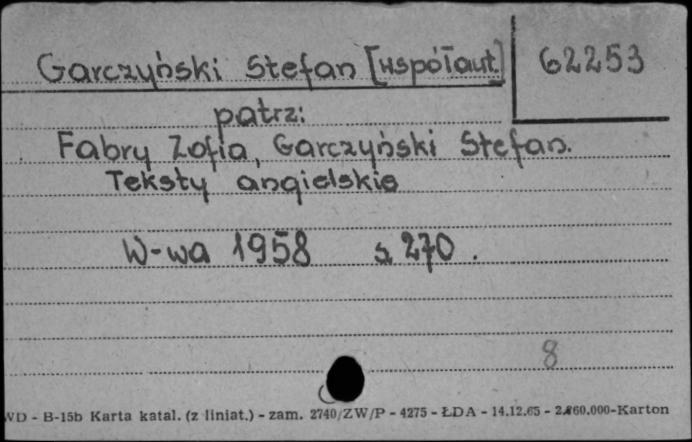 Garczyński Stefan [współaut.] 62253
patrz:
Fabry Zofia, Garczyński Stefan.
Teksty angielskie
W-wa 1958 s. 270.
8
WD - B-15b Karta katal. (z liniat.) - zam. 2740/ZW/P - 4275 - ŁDA - 14.12.65 - 2.860.000-Karton